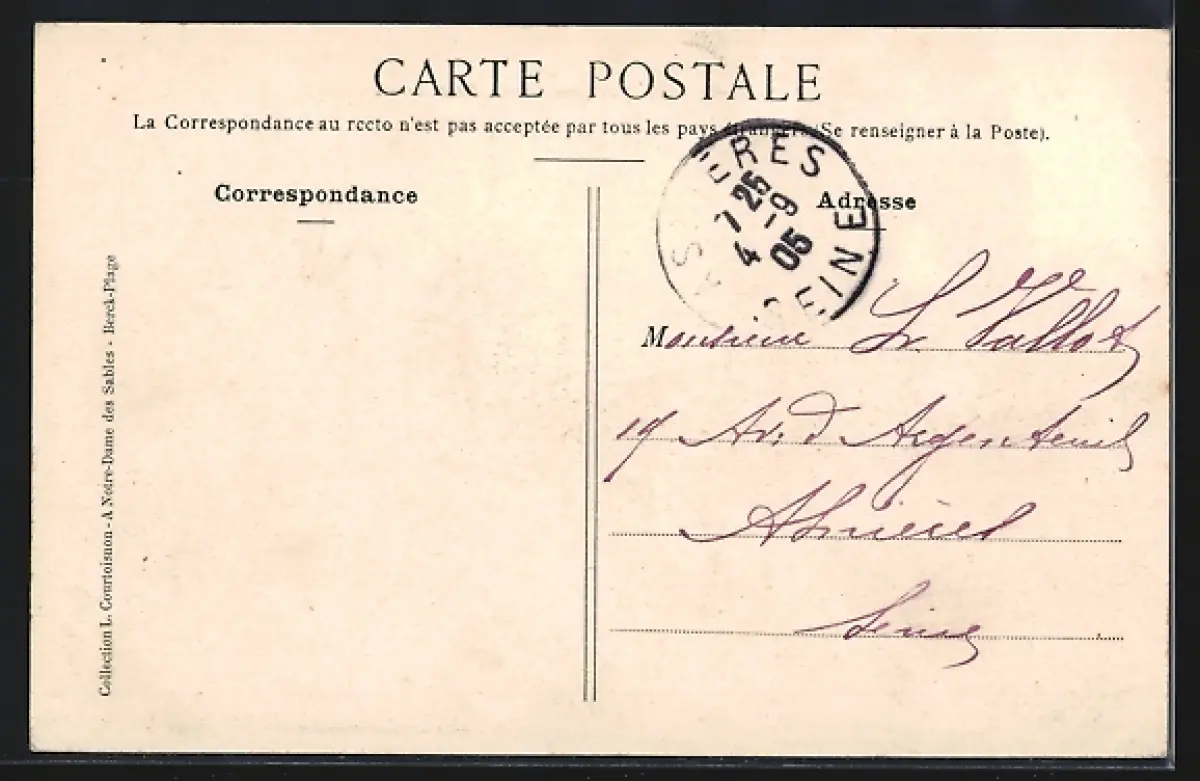 CARTE POSTALE
La Correspondance au recto n'est pas acceptée par tous les pays étrangers (Se renseigner à la Poste).
Correspondance
Adresse
ASNIÈRES
7 25
4 -9
05
SEINE
Monsieur Vallot
19 Av. d'Argenteuil
Asnières
Seine
Collection L. Courtoisnon - A Notre-Dame des Sables - Berck-Plage